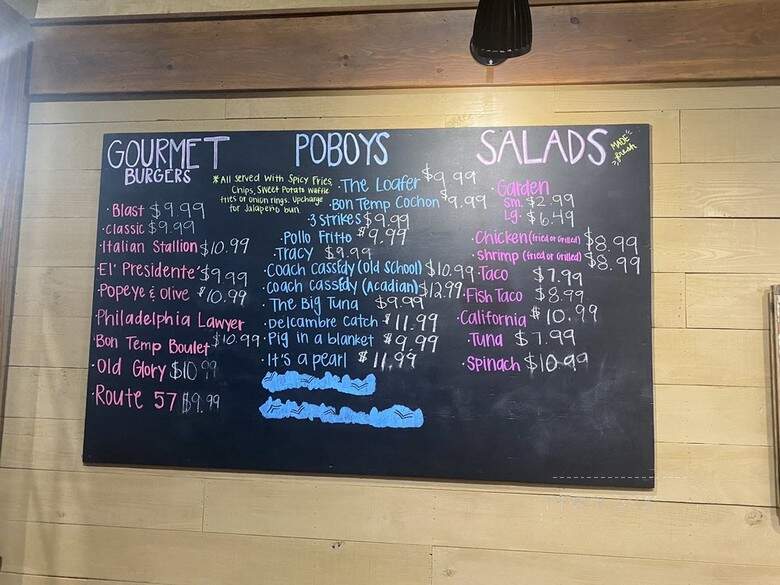 GOURMET
BURGERS
*All served with Spicy Fries,
Chips, Sweet Potato Waffle
fries or Onion rings. Upcharge
for Jalapeño bun
• Blast $9.99
• classic $9.99
• Italian Stallion $10.99
• El' Presidente' $9.99
• Popeye & Olive $10.99
• Philadelphia Lawyer
• Bon Temp Boulet $10.99
• Old Glory $10.99
• Route 57 $9.99
POBOYS
• The Loafer $9.99
• Bon Temp Cochon $9.99
• 3 Strikes $9.99
• Pollo Fritto $9.99
• Tracy $9.99
• Coach Cassfdy (old School) $10.99
• Coach Cassfdy (Acadian) $12.99
• The Big Tuna $9.99
• Delcambre Catch $11.99
• Pig in a blanket $9.99
• It's a pearl $11.99
SALADS
MADE
fresh
• Garden
Sm. $2.99
Lg. $6.49
• Chicken (fried or Grilled) $8.99
• shrimp (fried or Grilled) $8.99
• Taco $7.99
• Fish Taco $8.99
• California $10.99
• Tuna $7.99
• Spinach $10.99